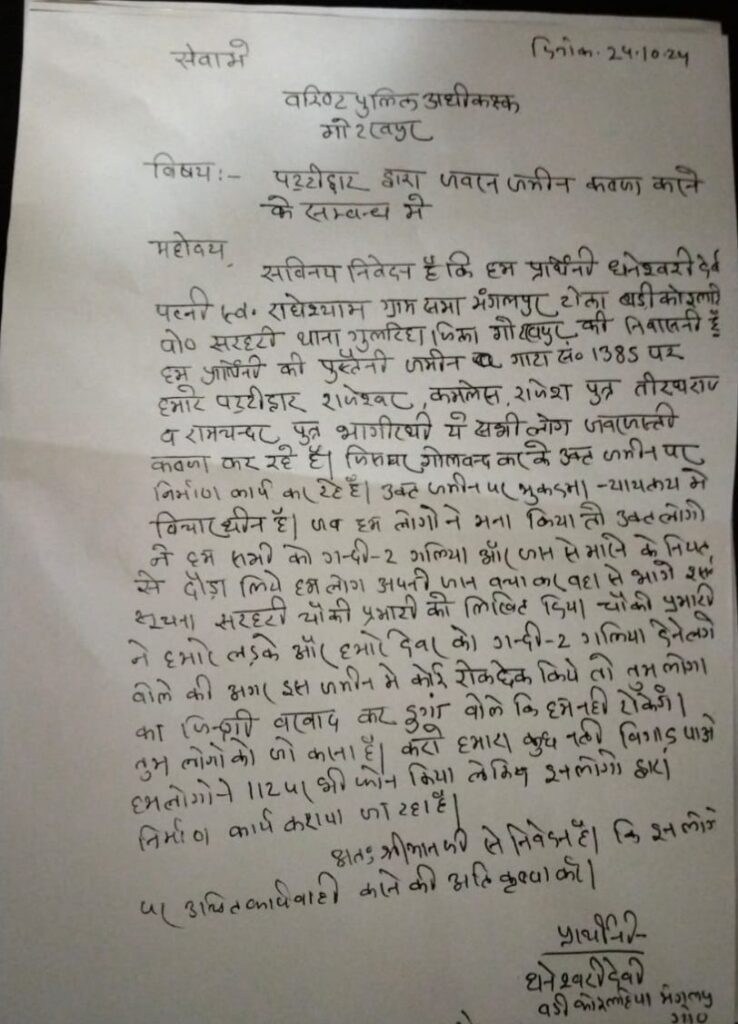 सेवामे
दिनांक. 24.10.24
वरिष्ट पुलिस अधीकस्क
गोरखपुर
विषय:- पट्टीदार द्वारा जबरन जमीन कबजा करने
के सम्बन्ध मे
महोदय,
सविनय निवेदन है कि हम प्रार्थिनी धनेश्वरी देवी
पत्नी स्व. राधेश्याम ग्राम सभा मंगलपुर टोला बडी
पो० सरहरी थाना गुलरिहा जिला गोरखपुर की निवासनी हूँ
हम प्रार्थिनी की पुस्तैनी जमीन गाटा सं० 1385 पर
हमारे पट्टीदार राजेश्वर, कमलेस, राजेश पुत्र तीरथराज
व रामचन्दर पुत्र भागीरथी ये सभी लोग जबरजस्ती
कबजा कर रहे है। जिसपर गोलबन्द कर के उक्त जमीन पर
निर्माण कार्य कर रहे है। उक्त जमीन पर मुकदमा न्यायलय मे
विचाराधीन है। जब हम लोगो ने मना किया तो उक्त लोगो
ने हम सभी को गन्दी-2 गलिया और जान से मारने के नियत
से दौड़ा लिये हम लोग अपनी जान बचा कर वहा से भागे
सूचना सरहरी चौकी प्रभारी को लिखित दिया। चौकी प्रभारी
ने हमारे लड़के और हमारे देवर को गन्दी-2 गलिया देने लगे
बोले की अगर इस जमीन मे कोई रोकटोक किये तो तुम लोगो
का जिन्दगी बरबाद कर दुगां बोले कि हम नही रोकेगें।
तुम लोगो को जो करना है। करो हमारा कुछ नही बिगाड पाओगे
हमलोगो ने 112 पर भी फोन किया लेकिन इन लोगो द्वारा
निर्माण कार्य कराया जा रहा है।
अतः श्रीमान जी से निवेदन है। कि इन लोगो
पर उचित कार्यवाही करने की अति कृप्या करें।
प्रार्थीनी-
धनेश्वरी देवी
बडी मंगलपुर